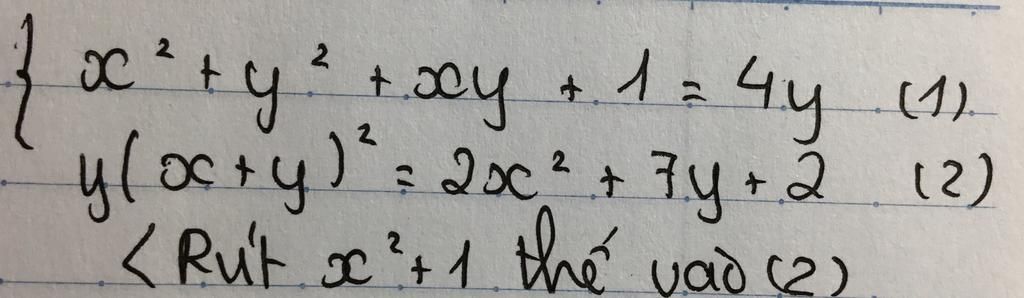 { x² + y² + xy + 1 = 4y (1)
y(x+y)² = 2x² + 7y + 2 (2)
< Rút x² + 1 thế vào (2)